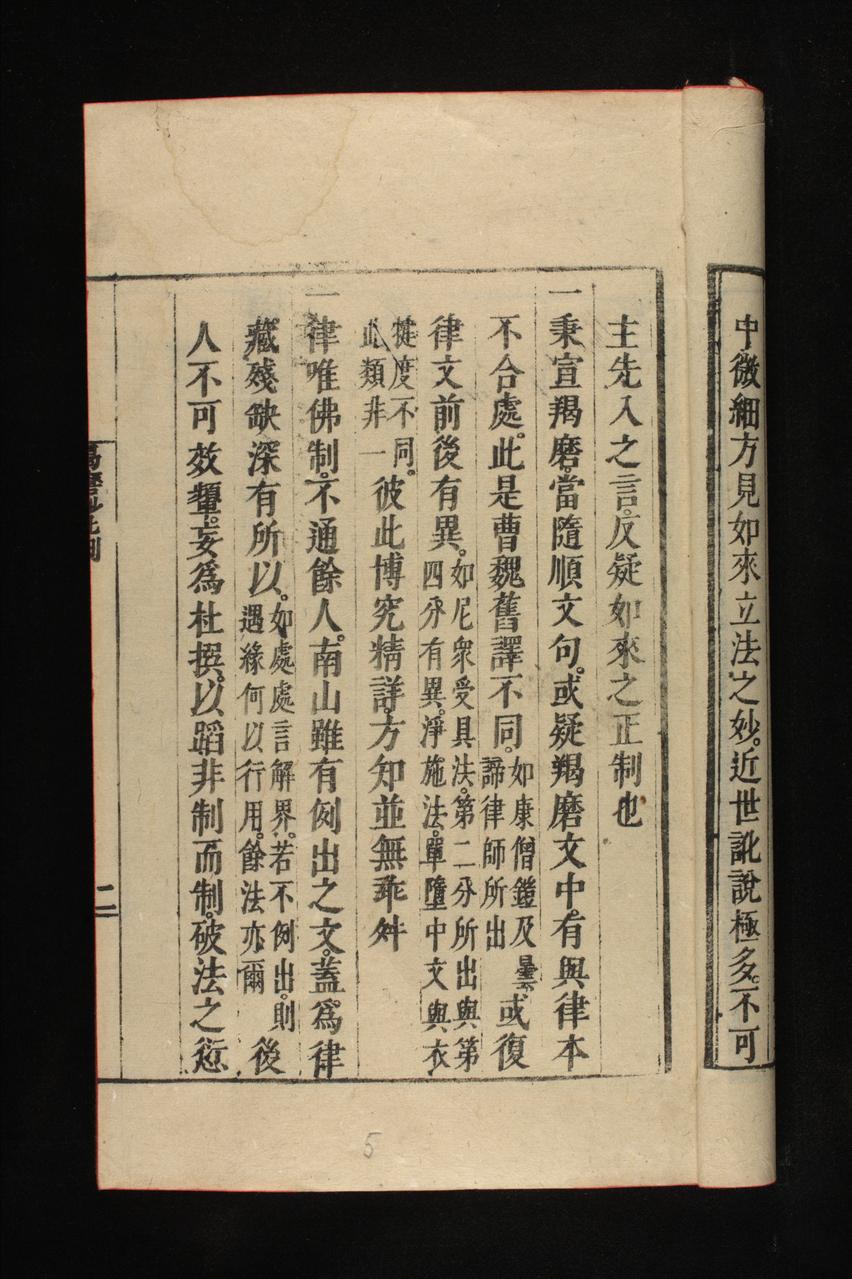 中微細方見如來立法之妙。近世訛說極多。不可
主先入之言。反疑如來之正制也
一秉宣羯磨。當隨順文句。或疑羯磨文中。有與律本
不合處。此是曹魏舊譯不同。如康僧鎧及曇諦律師所出。或復
律文前後有異。如尼眾受具法。第二分所出與第四分有異。淨施法。單墮中文與衣
犍度不同。此類非一彼此博究精詳。方知並無乖舛
一律唯佛制。不通餘人。南山雖有例出之文。蓋為律
藏殘缺深有所以。如處處言解界。若不例出。則遇緣何以行用。餘法亦爾後
人不可效顰。妄為杜撰。以蹈非制而制。破法之愆
二
5